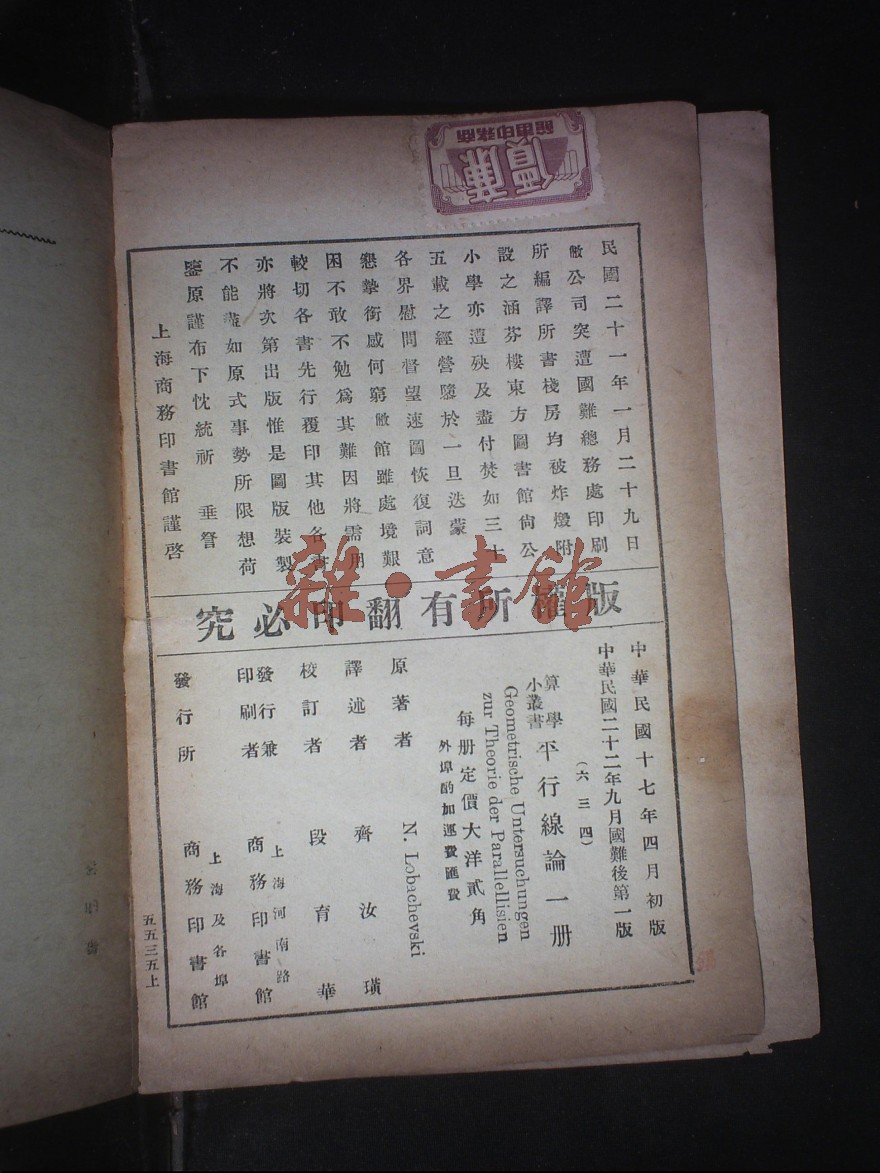 商務印書館
廉價
民國二十一年一月二十九日
敝公司突遭國難總務處印刷
所編譯所書棧房均被炸燬附
設之涵芬樓東方圖書館尚公
小學亦遭殃及盡付焚如三十
五載之經營隳於一旦迭蒙
各界慰問督望速圖恢復詞意
懇摯銜感何窮敝館雖處境艱
困不敢不勉爲其難因將需用
較切各書先行覆印其他各書
亦將次第出版惟是圖版裝製
不能盡如原式事勢所限想荷
鑒原謹布下忱統祈 垂詧
上海商務印書館謹啓
版權所有翻印必究
中華民國十七年四月初版
中華民國二十二年九月國難後第一版
(六三四)
算學小叢書 平行線論一册
Geometrische Untersuchungen
zur Theorie der Parallellisien
每册定價大洋貳角
外埠酌加運費匯費
原著者 N. Lobachevski
譯述者 齊汝璜
校訂者 段育華
發行兼印刷者 上海河南路 商務印書館
發行所 上海及各埠 商務印書館
五五三五上
雜·書館